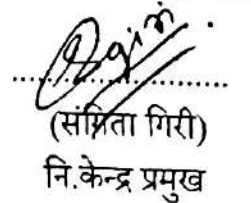 (संगिता गिरी)
नि.केन्द्र प्रमुख